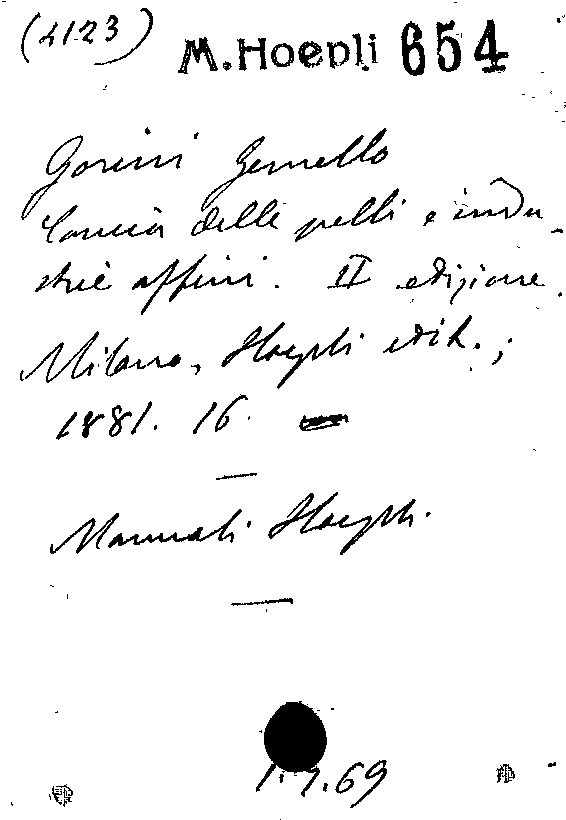 (2123)
M. Hoepli 654
Gorini Gemello
Concia delle pelli e indu-
strie affini. II edizione.
Milano, Hoepli edit.;
1881. 16.
Manuali Hoepli.
1.7.69